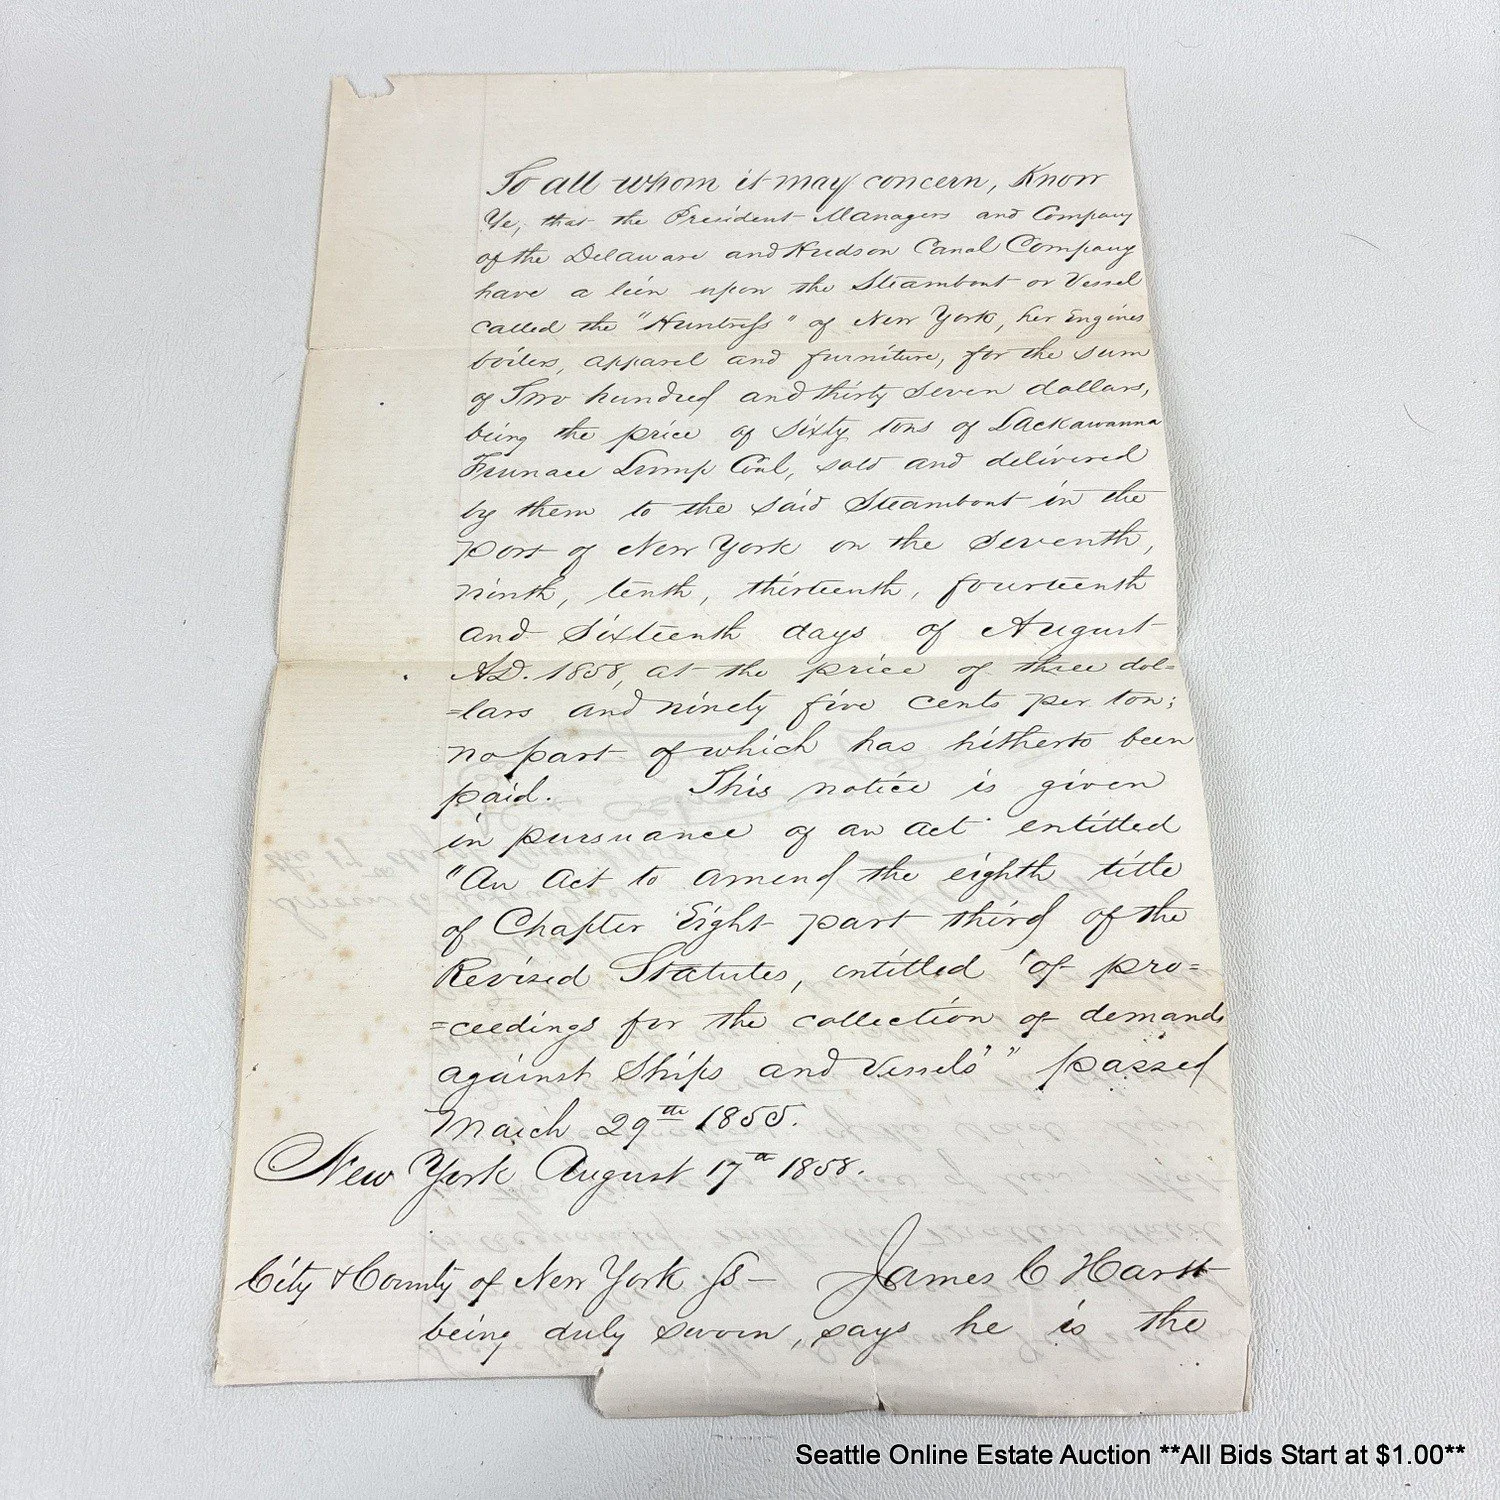 To all whom it may concern, Know
Ye, that the President Managers and Company
of the Delaware and Hudson Canal Company
have a lien upon the Steamboat or Vessel
called the "Huntress" of New York, her Engines
boilers, apparel and furniture, for the sum
of Two hundred and thirty seven dollars,
being the price of Sixty tons of Lackawanna
Furnace Lump Coal, sold and delivered
by them to the said Steamboat in the
port of New York on the Seventh,
ninth, tenth, thirteenth, fourteenth
and Sixteenth days of August
A.D. 1858, at the price of three dol=
=lars and ninety five cents per ton;
no part of which has hitherto been
paid. This notice is given
in pursuance of an act entitled
"An Act to amend the eighth title
of Chapter Eight part third of the
Revised Statutes, entitled 'of pro=
=ceedings for the collection of demands
against Ships and Vessels'" passed
March 29th 1855.
New York August 17th 1858.
City & County of New York ss — James C Hartt
being duly sworn, says he is the
Seattle Online Estate Auction **All Bids Start at $1.00**